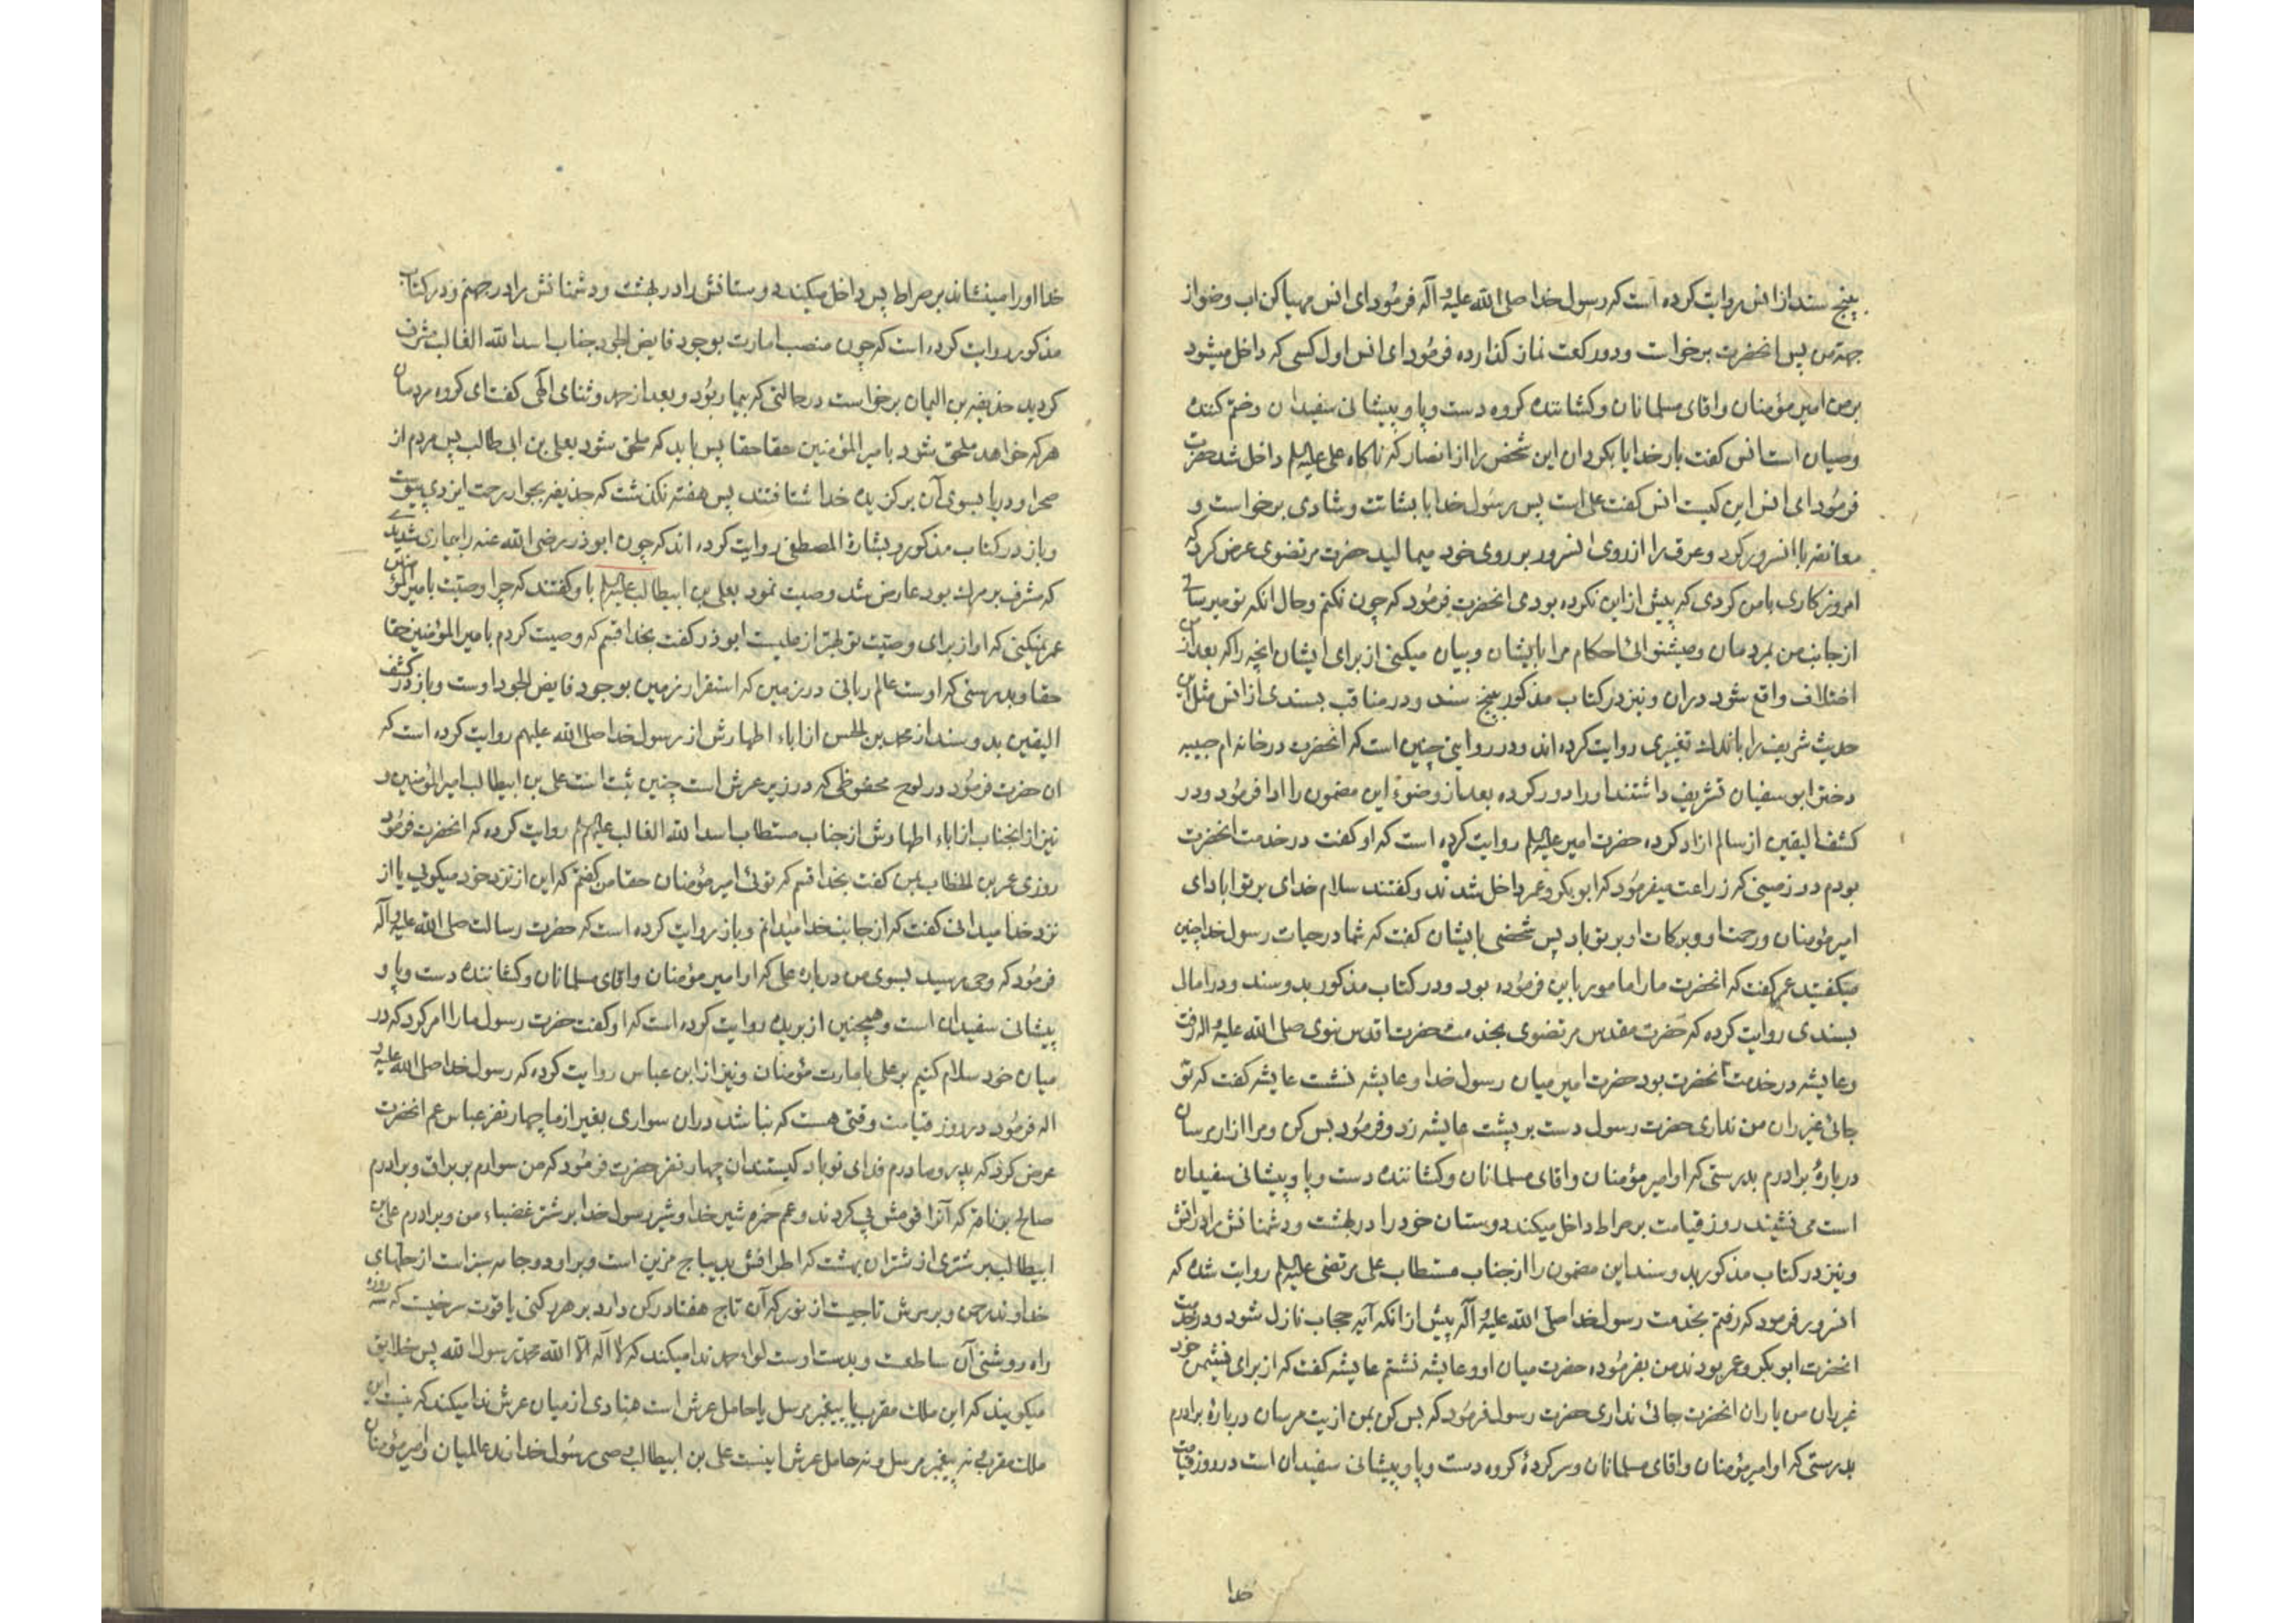 بپنج سند از انس روایت کرده است که رسول خدا صلی الله علیه و آله فرمود ای انس مهیا کن اب وضو از
جهة من پس انحضرت برخواست و دو رکعت نماز کذارده فرمود ای انس اول کسی که داخل میشود
بر من امیر مؤمنان و اقای مسلمانان و کشانندۀ کروه دست و پا و پیشانی سفیدان و ختم کنندۀ
وصیان است انس کفت بار خدایا بکردان این شخص را از انصار که ناکاه علی علیه السلم داخل شد حضرت
فرمود ای انس این کیست انس کفت علی است پس رسول خدا با بشاشت و شادی برخواست و
معانقه با انسرور کرد و عرق را از روی انسرور بر روی خود میمالید حضرت مرتضوی عرض کرد که
امروز کاری با من کردی که پیش از این نکرده بودی انحضرت فرمود که چون نکنم و حال انکه تو میرسانی
از جانب من بمردمان و میشنوانی احکام مرا بایشان و بیان میکنی از برای ایشان انچه را که بعد از من
اختلاف واقع شود دران و نیز در کتاب مذکور بپنج سند و در مناقب بسندی از انس مثل این
حدیث شریف را باندك تغییری روایت کرده اند و در روایتی چنین است که انحضرت در خانه ام حبیبه
دختر ابو سفیان تشریف داشتند او را دور کرده بعد از وضوء این مضمون را ادا فرمود و در
کشف الیقین از سالم ازاد کرده حضرت امیر علیه السلم روایت کرده است که او کفت در خدمت انحضرت
بودم در زمینی که زراعت میفرمود که ابو بکر و عمر داخل شدند و کفتند سلام خدای بر تو اباد ای
امیر مؤمنان و رحمت او و برکات او بر تو باد پس شخصی بایشان کفت که شما در حیات رسول خدا چنین
میکفتید عمر کفت که انحضرت ما را مامور باین فرموده بود و در کتاب مذکور بدو سند و در امالی
بسندی روایت کرده که حضرت مقدس مرتضوی بخدمت حضرت اقدس نبوی صلی الله علیه و اله رفت
و عایشه در خدمت انحضرت بود حضرت امیر میان رسول خدا و عایشه نشست عایشه کفت که تو
جائی غیر ران من نداری حضرت رسول دست بر پشت عایشه زد و فرمود بس کن و مرا ازار مرسان
دربارۀ برادرم بدرستی که او امیر مؤمنان و اقای مسلمانان و کشانندۀ دست و پا و پیشانی سفیدان
است می نشیند روز قیامت بر صراط داخل میکند دوستان خود را در بهشت و دشمنانش را در اتش
و نیز در کتاب مذکور بدو سند این مضمون را از جناب مستطاب علی مرتضی علیه السلم روایت شده که
انسرور فرمود که رفتم بخدمت رسول خدا صلی الله علیه و آله پیش از انکه آیه حجاب نازل شود و در خدمت
انحضرت ابو بکر و عمر بودند من بفرموده حضرت میان او و عایشه نشستم عایشه کفت که از برای نشیمن خود
غیر ران من یا ران انحضرت جائی نداری حضرت رسول فرمود که بس کن بمن اذیت مرسان دربارۀ برادرم
بدرستی که او امیر مؤمنان و اقای مسلمانان و سرکردۀ کروه دست و پا و پیشانی سفیدان است در روز قیامت
خدا
خدا او را مینشاند بر صراط پس داخل میکند دوستانش را در بهشت و دشمنانش را در جهنم و در کتاب
مذکور روایت کرده است که چون منصب امارت بوجود فایض الجود جناب اسد الله الغالب مشرف
کردید حذیفه بن الیمان برخواست در حالتی که بیمار بود و بعد از حمد و ثنای الهی کفت ای کروه مردمان
هر که خواهد ملحق شود بامیر المؤمنین حقا حقا پس باید که ملحق شود بعلی بن ابی طالب پس مردم از
صحرا و دریا بسوی آن برکزیده خدا شتافتند پس هفته نکذشت که حذیفه بجوار رحمت ایزدی پیوست
و باز در کتاب مذکور و بشارة المصطفی روایت کرده اند که چون ابوذر رضی الله عنه را بیماری شدید
که مشرف بر مرك بود عارض شد وصیت نمود بعلی بن ابیطالب علیه السلم باو کفتند که چرا وصیت بامیر المؤمنین
عمر نمیکنی که او از برای وصیت تو بهتر از علیست ابوذر کفت بخدا قسم که وصیت کردم بامیر المؤمنین حقا
حقا و بدرستی که اوست عالم ربانی در زمین که استقرار زمین بوجود فایض الجود اوست و باز در کشف
الیقین بدو سند از محمد بن الحسن از اباء اطهارش از رسول خدا صلی الله علیهم روایت کرده است که
ان حضرت فرمود در لوح محفوظی که در زیر عرش است چنین ثبت است علی بن ابیطالب امیر المؤمنین و
نیز از انجناب از اباء اطهارش از جناب مستطاب اسد الله الغالب علیهم السلم روایت کرده که انحضرت فرمود
روزی عمر بن الخطاب بمن کفت بخدا قسم که توئی امیر مؤمنان حقا من کفتم که این از نزد خود میکویی یا از
نزد خدا میدانی کفت که از جانب خدا میدانم و باز روایت کرده است که حضرت رسالت صلی الله علیه و آله
فرمود که وحی رسید بسوی من در باره علی که او امیر مؤمنان و اقای مسلمانان و کشانندۀ دست و پا و
پیشانی سفیدان است و همچنین از بریده روایت کرده است که او کفت حضرت رسول ما را امر کرد که در
میان خود سلام کنیم بر علی بامارت مؤمنان و نیز از ابن عباس روایت کرده که رسول خدا صلی الله علیه و
اله فرمود در روز قیامت وقتی هست که نباشد دران سواری بغیر از ما چهار نفر عباس عم انحضرت
عرض کرد که پدر و مادرم فدای تو باد کیستند ان چهار نفر حضرت فرمود که من سوارم بر براق و برادرم
صالح بر ناقه که آنرا قومش پی کردند و عم حمزه شیر خدا و شیر رسول خدا بر شتر غضباء من و برادرم علی بن
ابیطالب بر شتری از شتران بهشت که اطرافش بدیباج مزین است و بر او دو جامه سبز است از حلهای
خداوند رحمن و بر سرش تاجیست از نور که آن تاج هفتاد رکن دارد بر هر رکنی یاقوت سرخیست که سه روزه
راه روشنی آن ساطعست و بدست اوست لواء حمد ندا میکند که لا اله الا الله محمد رسول الله پس خلایق
میکویند که این ملك مقرب یا پیغمبر مرسل یا حامل عرش است منادی از میان عرش ندا میکند که نیست این
ملك مقربی نه پیغمبر مرسل و نه حامل عرش اینست علی بن ابیطالب وصی رسول خداوند عالمیان و امیر مؤمنان